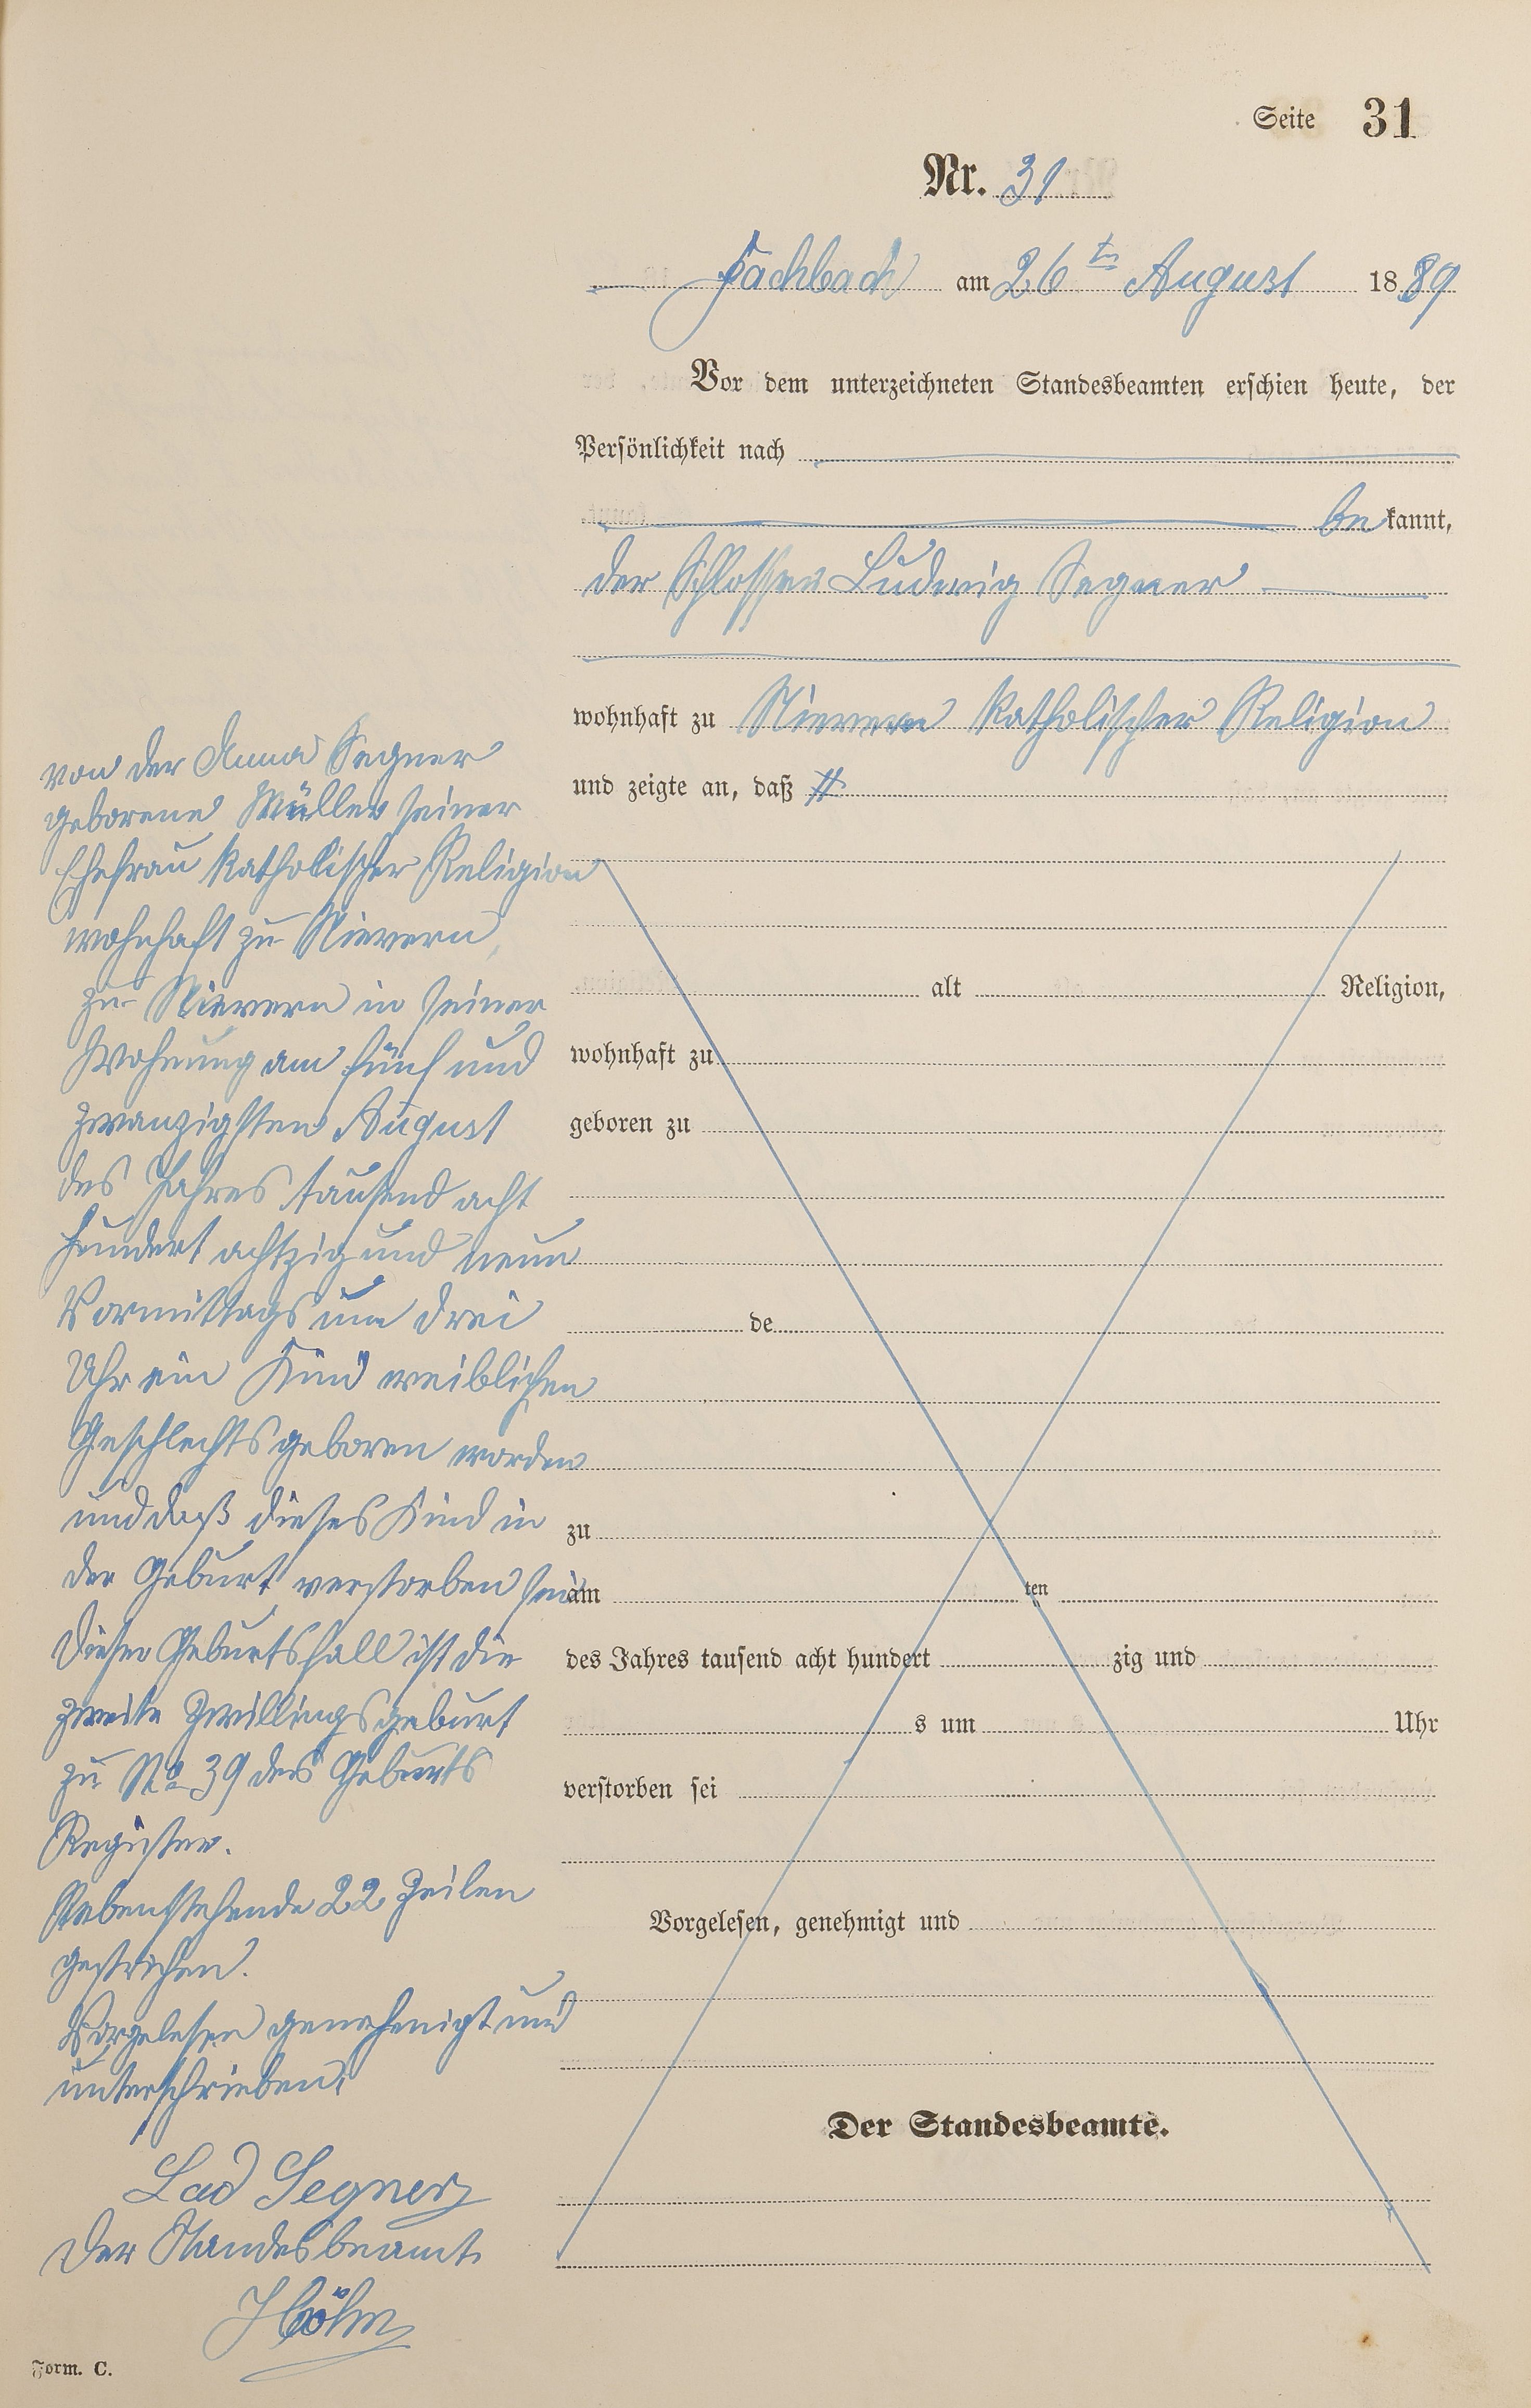 Seite 31
Nr. 31
Fachbach am 26ten August 1889
Vor dem unterzeichneten Standesbeamten erschien heute, der
Persönlichkeit nach
be kannt,
der Schlosser Ludwig Segner
wohnhaft zu Nievern katholischer Religion
und zeigte an, daß #
von der Anna Segner
geborene Müller seiner
Ehefrau katholischer Religion
wohnhaft zu Nievern,
zu Nievern in seiner
Wohnung am fünf und
zwanzigsten August
des Jahres tausend acht
hundert achtzig und neun
Vormittags um drei
Uhr ein Kind weiblichen
Geschlechts geboren worden
und daß dieses Kind in
der Geburt verstorben sei
Dieser Geburtsfall ist die
zweite Zwillingsgeburt
zu No 39 des Geburts
Register.
Nebenstehende 22 Zeilen
gestrichen.
Vorgelesen genehmigt und
unterschrieben.
Lud Segner
Der Standesbeamte
alt Religion,
wohnhaft zu
geboren zu
de
zu
am ten
des Jahres tausend acht hundert zig und
s um Uhr
verstorben sei
Vorgelesen, genehmigt und
Der Standesbeamte.
Form. C.